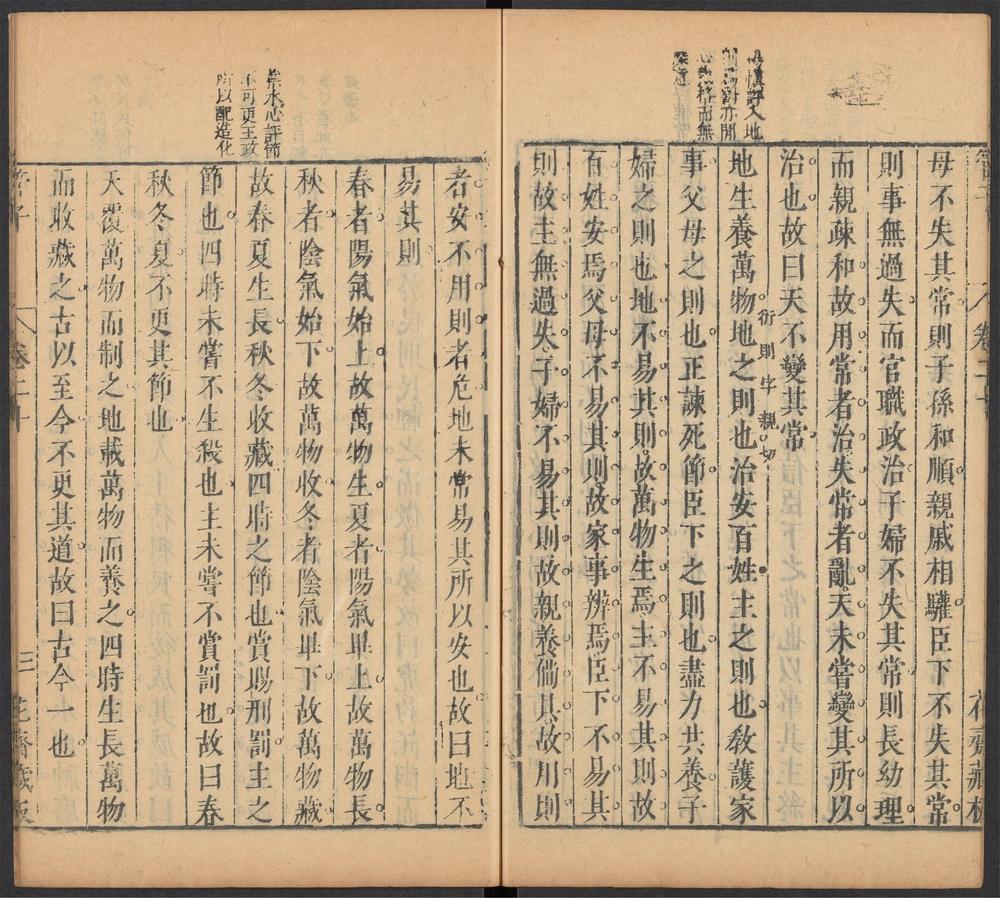 管子
卷二十
花齋藏板
母不失其常則子孫和順親戚相驩臣下不失其常
則事無過失而官職政治子婦不失其常則長幼理
而親疎和故用常者治失常者亂天未嘗變其所以
治也故曰天不變其常
地生養萬物地之則也治安百姓主之則也教護家
衍則字親切
事父母之則也正諫死節臣下之則也盡力共養子
婦之則也地不易其則故萬物生焉主不易其則故
百姓安焉父母不易其則故家事辨焉臣下不易其
則故主無過失子婦不易其則故親養備具故用則
者安不用則者危地未常易其所以安也故曰地不
易其則
春者陽氣始上故萬物生夏者陽氣畢上故萬物長
秋者陰氣始下故萬物收冬者陰氣畢下故萬物藏
水心評節
不可更王政
所以配造化
故春夏生長秋冬收藏四時之節也賞賜刑罰主之
節也四時未嘗不生殺也主未嘗不賞罰也故曰春
秋冬夏不更其節也
天覆萬物而制之地載萬物而養之四時生長萬物
而收藏之古以至今不更其道故曰古今一也
管子
卷二十
三
花齋藏板